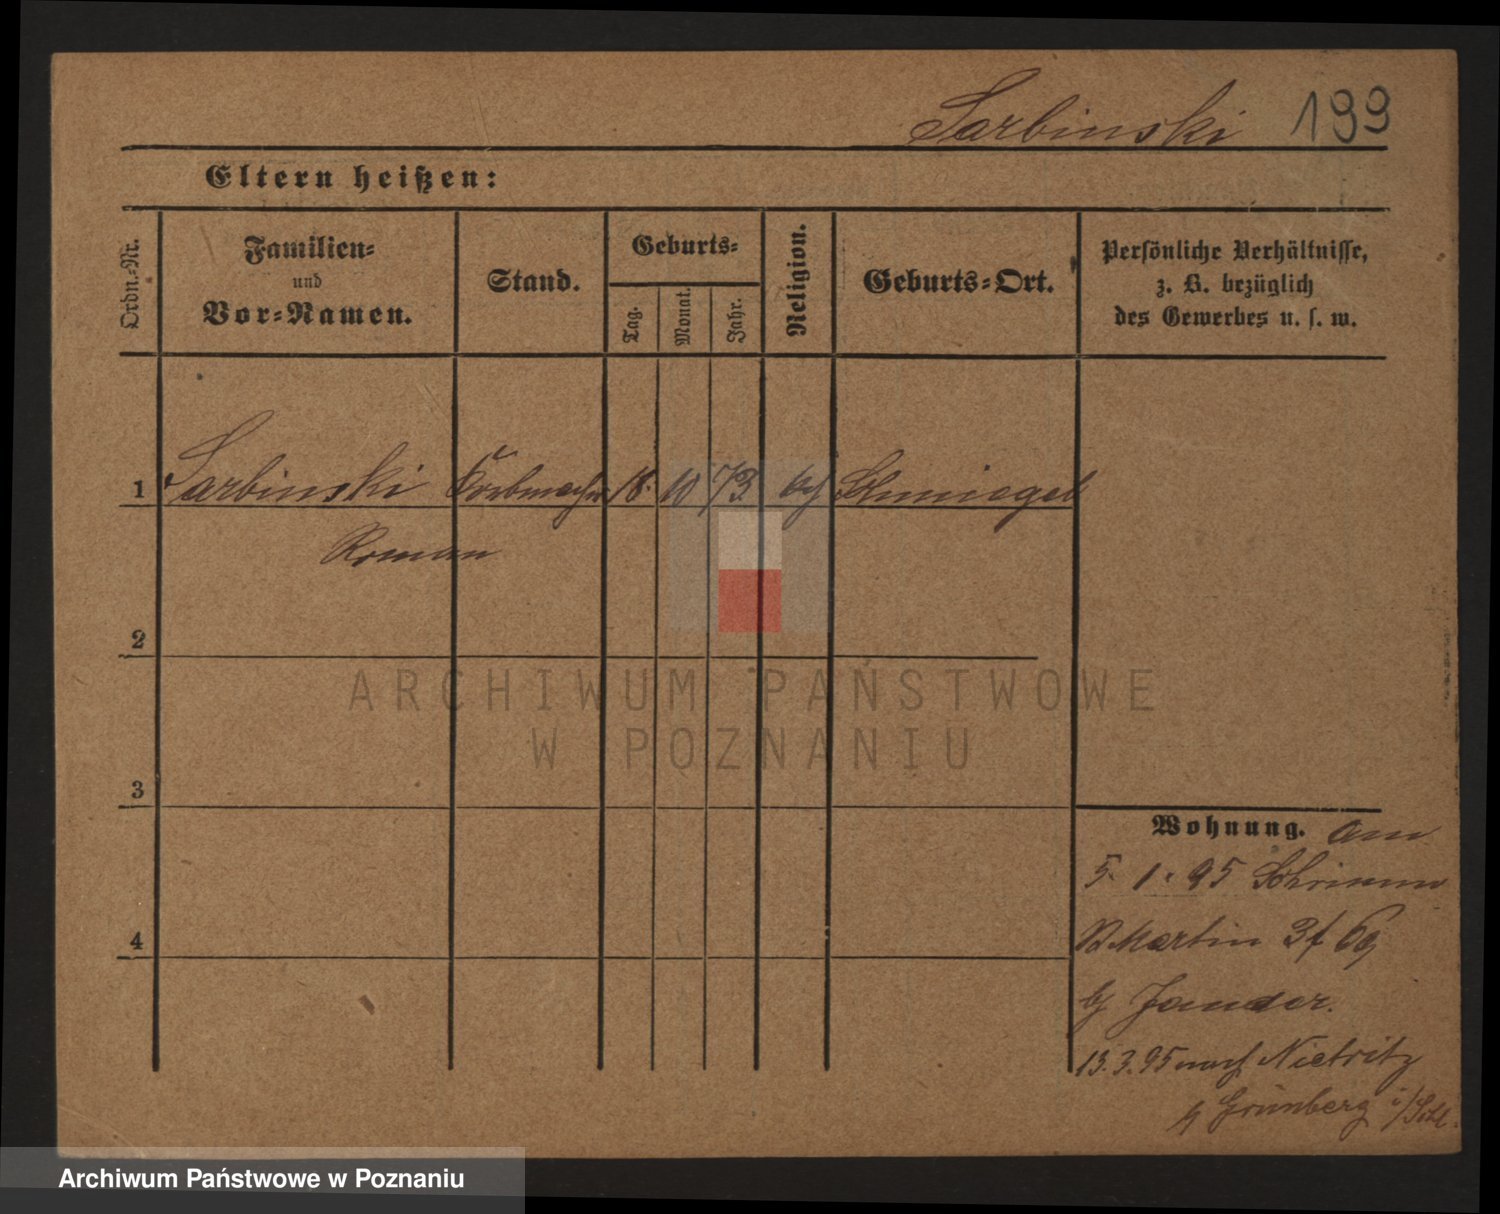 Sarbinski 199
Eltern heißen:
Ordn.-Nr.
Familien-
und
Vor-Namen.
Stand.
Geburts-
Tag.
Monat.
Jahr.
Religion.
Geburts-Ort.
Persönliche Verhältnisse,
z. B. bezüglich
des Gewerbes u. s. w.
1 Sarbinski Korbmacher 18. 10 73 Schmiegel
Roman
2
3
4
Wohnung. am
5. 1. 95 Schrimm
St Martin 3f 69
bj Jander.
13. 3. 95 nach Nietritz
Grünberg i/Schl.
ARCHIWUM PAŃSTWOWE
W POZNANIU
Archiwum Państwowe w Poznaniu